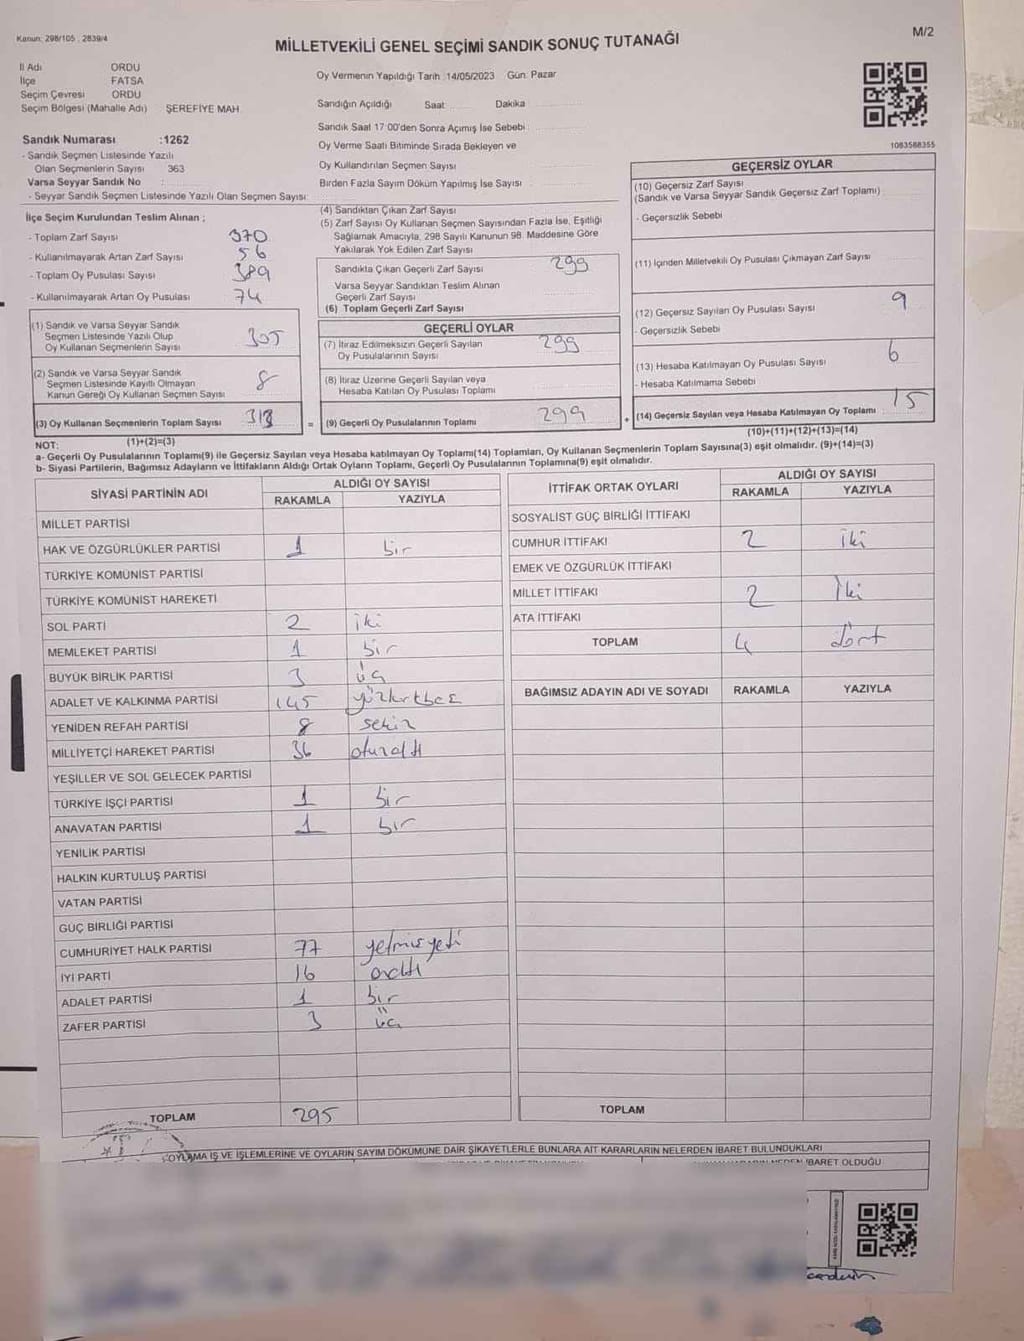 Kanun: 298/105 , 2839/4
M/2
MİLLETVEKİLİ GENEL SEÇİMİ SANDIK SONUÇ TUTANAĞI
İl Adı ORDU
İlçe FATSA
Seçim Çevresi ORDU
Seçim Bölgesi (Mahalle Adı) ŞEREFİYE MAH.
Sandık Numarası :1262
- Sandık Seçmen Listesinde Yazılı
Olan Seçmenlerin Sayısı 363
Varsa Seyyar Sandık No :
- Seyyar Sandık Seçmen Listesinde Yazılı Olan Seçmen Sayısı:
Oy Vermenin Yapıldığı Tarih :14/05/2023 Gün: Pazar
Sandığın Açıldığı Saat Dakika
Sandık Saat 17:00'den Sonra Açımış İse Sebebi :
Oy Verme Saati Bitiminde Sırada Bekleyen ve
Oy Kullandırılan Seçmen Sayısı
Birden Fazla Sayım Döküm Yapılmış İse Sayısı :
1083588355
İlçe Seçim Kurulundan Teslim Alınan ;
- Toplam Zarf Sayısı 370
- Kullanılmayarak Artan Zarf Sayısı 56
- Toplam Oy Pusulası Sayısı 389
- Kullanılmayarak Artan Oy Pusulası 74
(1) Sandık ve Varsa Seyyar Sandık
Seçmen Listesinde Yazılı Olup
Oy Kullanan Seçmenlerin Sayısı 305
(2) Sandık ve Varsa Seyyar Sandık
Seçmen Listesinde Kayıtlı Olmayan
Kanun Gereği Oy Kullanan Seçmen Sayısı 8
(3) Oy Kullanan Seçmenlerin Toplam Sayısı 313 =
(1)+(2)=(3)
(4) Sandıktan Çıkan Zarf Sayısı
(5) Zarf Sayısı Oy Kullanan Seçmen Sayısından Fazla İse, Eşitliği
Sağlamak Amacıyla, 298 Sayılı Kanunun 98. Maddesine Göre
Yakılarak Yok Edilen Zarf Sayısı
Sandıkta Çıkan Geçerli Zarf Sayısı 299
Varsa Seyyar Sandıktan Teslim Alınan
Geçerli Zarf Sayısı
(6) Toplam Geçerli Zarf Sayısı
GEÇERLİ OYLAR
(7) İtiraz Edilmeksizin Geçerli Sayılan 299
Oy Pusulalarının Sayısı
(8) İtiraz Üzerine Geçerli Sayılan veya
Hesaba Katılan Oy Pusulası Toplamı
(9) Geçerli Oy Pusulalarının Toplamı 299 +
GEÇERSİZ OYLAR
(10) Geçersiz Zarf Sayısı
(Sandık ve Varsa Seyyar Sandık Geçersiz Zarf Toplamı)
- Geçersizlik Sebebi
(11) İçinden Milletvekili Oy Pusulası Çıkmayan Zarf Sayısı
(12) Geçersiz Sayılan Oy Pusulası Sayısı 9
- Geçersizlik Sebebi
(13) Hesaba Katılmayan Oy Pusulası Sayısı 6
- Hesaba Katılmama Sebebi
(14) Geçersiz Sayılan veya Hesaba Katılmayan Oy Toplamı 15
(10)+(11)+(12)+(13)=(14)
NOT:
a- Geçerli Oy Pusulalarının Toplamı(9) ile Geçersiz Sayılan veya Hesaba katılmayan Oy Toplamı(14) Toplamları, Oy Kullanan Seçmenlerin Toplam Sayısına(3) eşit olmalıdır. (9)+(14)=(3)
b- Siyasi Partilerin, Bağımsız Adayların ve İttifakların Aldığı Ortak Oyların Toplamı, Geçerli Oy Pusulalarının Toplamına(9) eşit olmalıdır.
SİYASİ PARTİNİN ADI
ALDIĞI OY SAYISI
RAKAMLA YAZIYLA
MİLLET PARTİSİ
HAK VE ÖZGÜRLÜKLER PARTİSİ 1 bir
TÜRKİYE KOMÜNİST PARTİSİ
TÜRKİYE KOMÜNİST HAREKETİ
SOL PARTİ 2 iki
MEMLEKET PARTİSİ 1 bir
BÜYÜK BİRLİK PARTİSİ 3 üç
ADALET VE KALKINMA PARTİSİ 145 yüzkırkbeş
YENİDEN REFAH PARTİSİ 8 sekiz
MİLLİYETÇİ HAREKET PARTİSİ 36 otuzaltı
YEŞİLLER VE SOL GELECEK PARTİSİ
TÜRKİYE İŞÇİ PARTİSİ 1 bir
ANAVATAN PARTİSİ 1 bir
YENİLİK PARTİSİ
HALKIN KURTULUŞ PARTİSİ
VATAN PARTİSİ
GÜÇ BİRLİĞİ PARTİSİ
CUMHURİYET HALK PARTİSİ 77 yetmişyedi
İYİ PARTİ 16 onaltı
ADALET PARTİSİ 1 bir
ZAFER PARTİSİ 3 üç
TOPLAM 295
İTTİFAK ORTAK OYLARI
ALDIĞI OY SAYISI
RAKAMLA YAZIYLA
SOSYALİST GÜÇ BİRLİĞİ İTTİFAKI
CUMHUR İTTİFAKI 2 iki
EMEK VE ÖZGÜRLÜK İTTİFAKI
MİLLET İTTİFAKI 2 İki
ATA İTTİFAKI
TOPLAM 4 dört
BAĞIMSIZ ADAYIN ADI VE SOYADI RAKAMLA YAZIYLA
TOPLAM
OYLAMA İŞ VE İŞLEMLERİNE VE OYLARIN SAYIM DÖKÜMÜNE DAİR ŞİKAYETLERLE BUNLARA AİT KARARLARIN NELERDEN İBARET BULUNDUKLARI
İBARET OLDUĞU